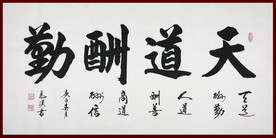 天道酬勤
天道
酬勤
人道
酬善
商道
酬信